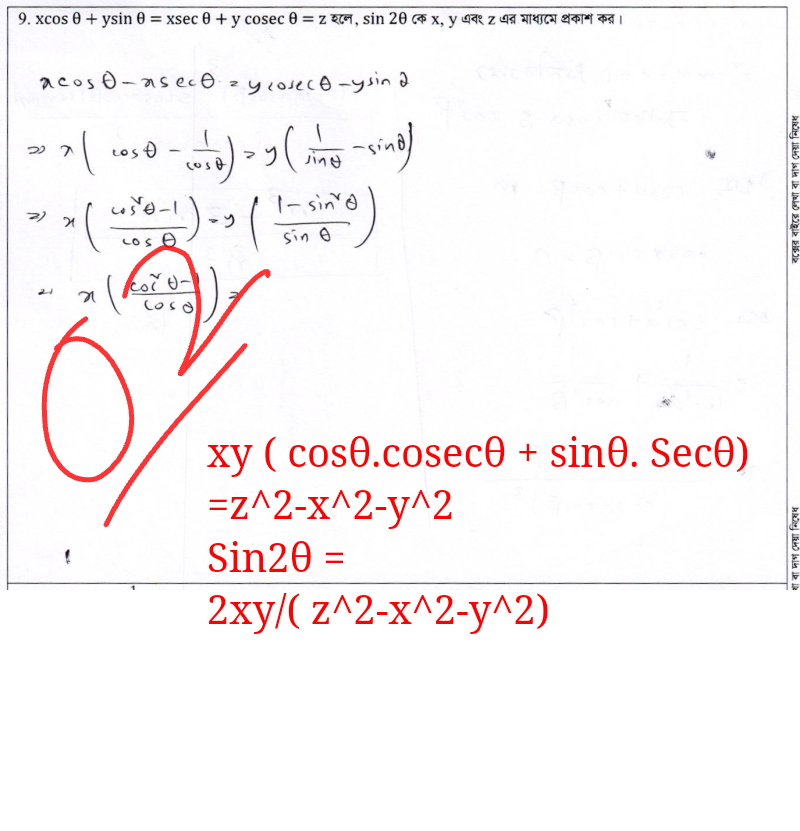 9. xcos θ + ysin θ = xsec θ + y cosec θ = z হলে, sin 2θ কে x, y এবং z এর মাধ্যমে প্রকাশ কর।
xcosθ - xsecθ = ycosecθ - ysin2
⇒ x( cosθ - 1/cosθ) = y( 1/sinθ - sinθ)
⇒ x( cos²θ-1/cosθ ) = y ( 1-sin²θ/sin θ )
⇒ x ( cos²θ-1/cosθ ) =
0/2
xy ( cosθ.cosecθ + sinθ. Secθ)
=z^2-x^2-y^2
Sin2θ =
2xy/( z^2-x^2-y^2)
বক্সের বাইরে লেখা বা দাগ দেয়া নিষেধ
খা বা দাগ দেয়া নিষেধ